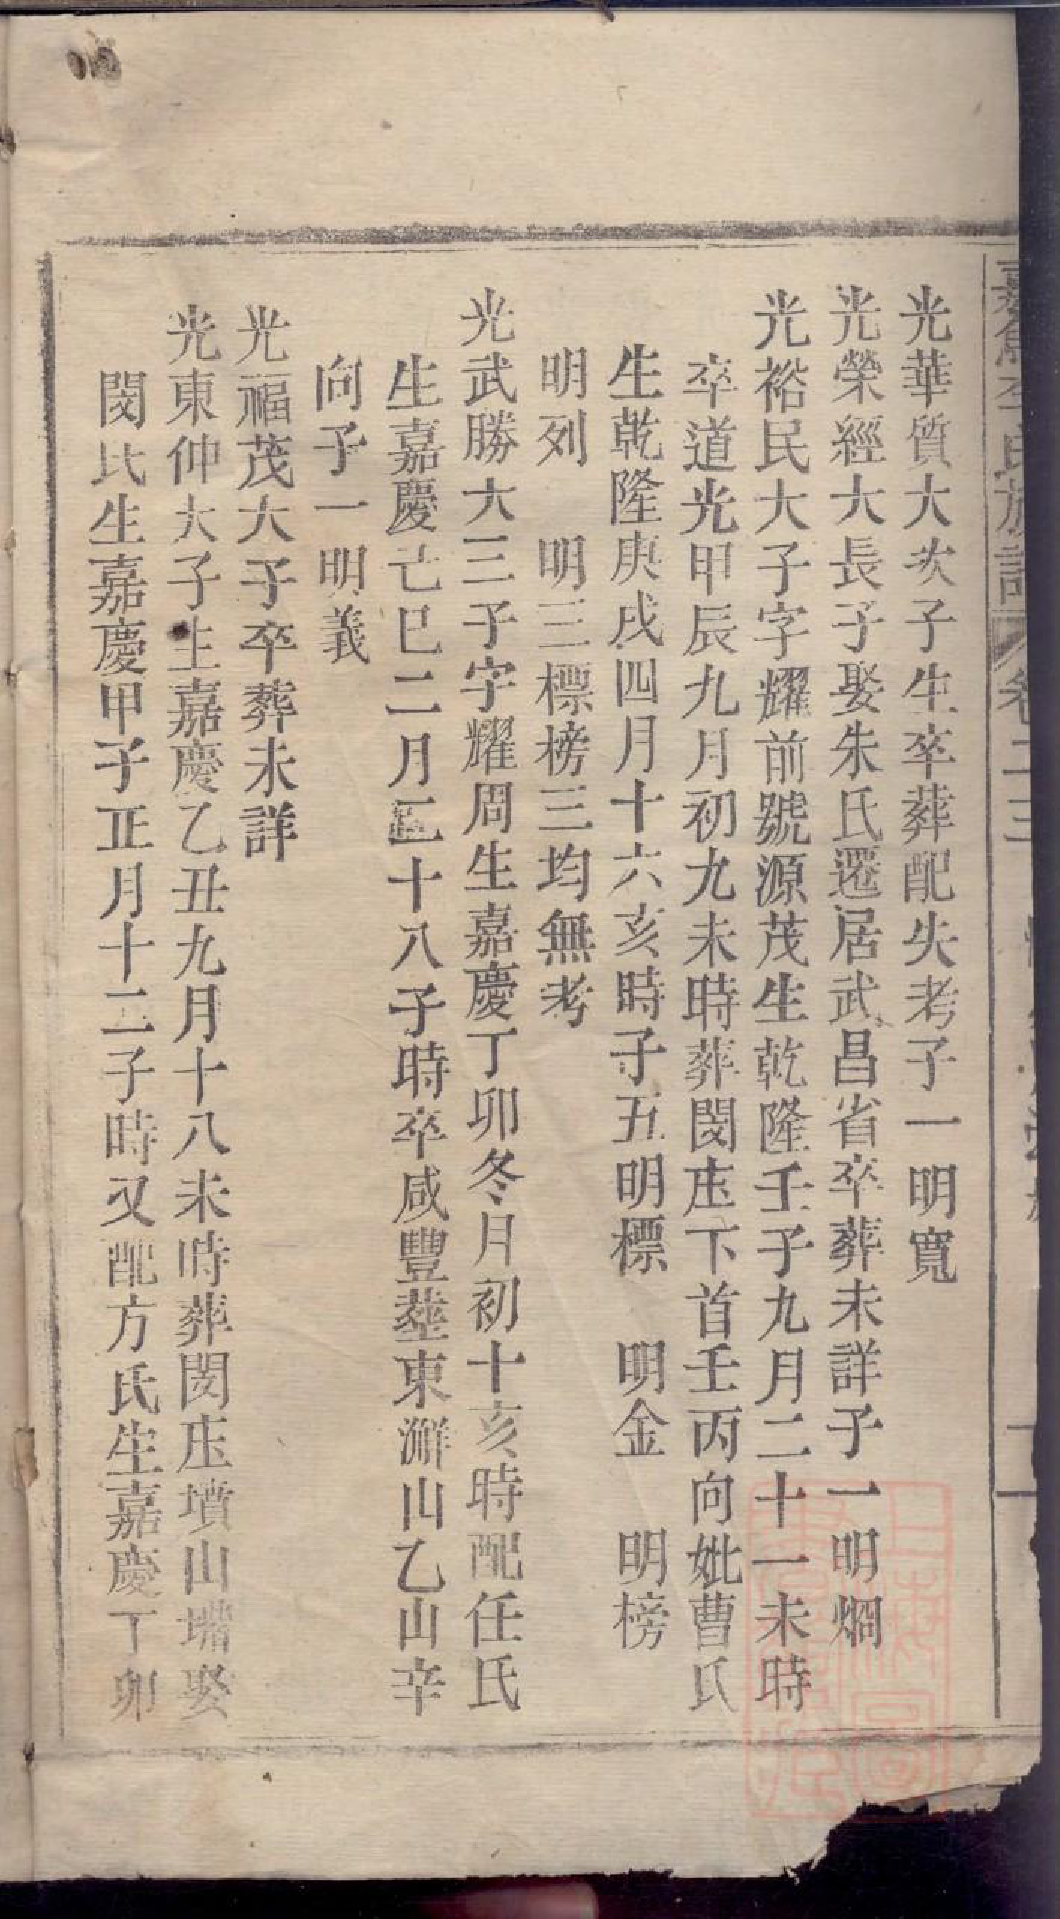 氏族
卷二三
光華質大次子生卒葬配失考子一明寬
光榮經大長子娶朱氏遷居武昌省卒葬未詳子一明烱
光裕民大子字耀前號源茂生乾隆壬子九月二十一未時
卒道光甲辰九月初九未時葬閔庄下首壬丙向妣曹氏
生乾隆庚戌四月十六亥時子五明標　明金　明榜
明列　明三標榜三均無考
光武勝大三子字耀周生嘉慶丁卯冬月初十亥時配任氏
生嘉慶己巳二月十八子時卒咸豐葬東山乙山辛
向子一明義
光福茂大子卒葬未詳
光東仲大子生嘉慶乙丑九月十八未時葬閔庄墳山嘴娶
閔氏生嘉慶甲子正月十二子時又配方氏生嘉慶丁卯